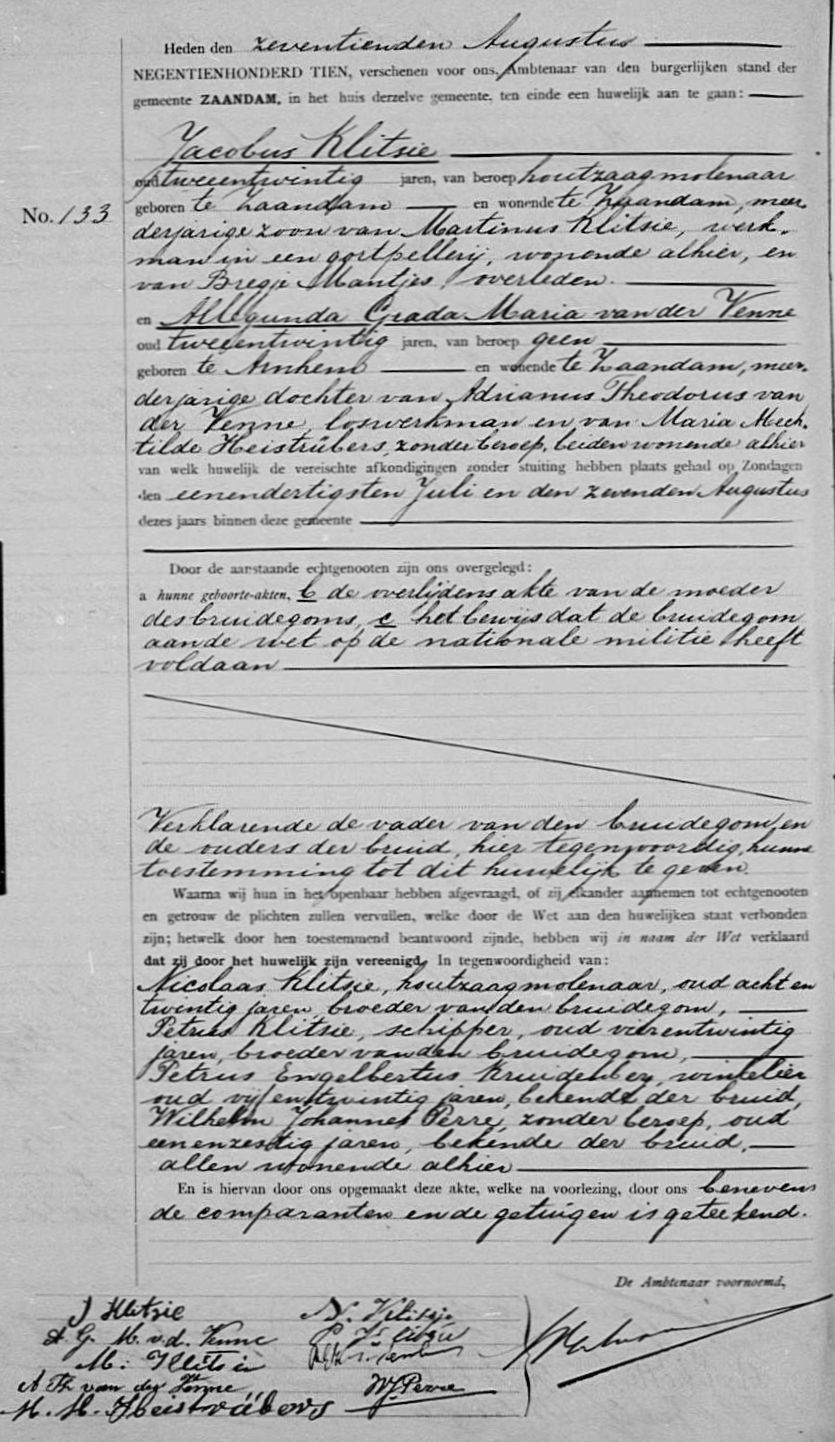 Heden den zeventienden Augustus
NEGENTIENHONDERD TIEN, verschenen voor ons, Ambtenaar van den burgerlijken stand der
gemeente ZAANDAM, in het huis derzelve gemeente, ten einde een huwelijk aan te gaan:
Jacobus Klitsie
oud tweeentwintig jaren, van beroep houtzaagmolenaar
No. 133
geboren te Zaandam en wonende te Zaandam, meer-
derjarige zoon van Martinus Klitsie, werk-
man in een gortpellerij, wonende alhier, en
van Bregje Mantjes, overleden.
en Allegunda Grada Maria van der Venne
oud tweeentwintig jaren, van beroep geen
geboren te Arnhem en wonende te Zaandam, meer-
derjarige dochter van Adrianus Theodorus van
der Venne, loswerkman en van Maria Mech-
tilde Heistrübers, zonder beroep, beiden wonende alhier
van welk huwelijk de vereischte afkondigingen zonder stuiting hebben plaats gehad op Zondagen
den eenendertigsten Juli en den zevenden Augustus
dezes jaars binnen deze gemeente
Door de aanstaande echtgenooten zijn ons overgelegd:
a hunne geboorte-akten, b de overlijdensakte van de moeder
des bruidegoms, c het bewijs dat de bruidegom
aan de wet op de nationale militie heeft
voldaan
Verklarende de vader van den bruidegom, en
de ouders der bruid, hier tegenwoordig, hunne
toestemming tot dit huwelijk te geven.
Waarna wij hun in het openbaar hebben afgevraagd, of zij elkander aannemen tot echtgenooten
en getrouw de plichten zullen vervullen, welke door de Wet aan den huwelijken staat verbonden
zijn; hetwelk door hen toestemmend beantwoord zijnde, hebben wij in naam der Wet verklaard
dat zij door het huwelijk zijn vereenigd. In tegenwoordigheid van:
Nicolaas Klitsie, houtzaagmolenaar, oud acht en
twintig jaren, broeder van den bruidegom,
Petrus Klitsie, schipper, oud vierentwintig
jaren, broeder van den bruidegom,
Petrus Engelbertus Kruidenber, winkelier
oud vijfentwintig jaren, bekende der bruid,
Wilhelm Johannes Perre, zonder beroep, oud
eenenzestig jaren, bekende der bruid,
allen wonende alhier
En is hiervan door ons opgemaakt deze akte, welke na voorlezing, door ons benevens
de comparanten en de getuigen is geteekend.
De Ambtenaar voornoemd,
J Klitsie
N. Klitsie
A. G. M. v.d. Venne
P. Klitsie
M. Klitsie
A Th van der Venne
WJ Perre
M. M. Heistrübers